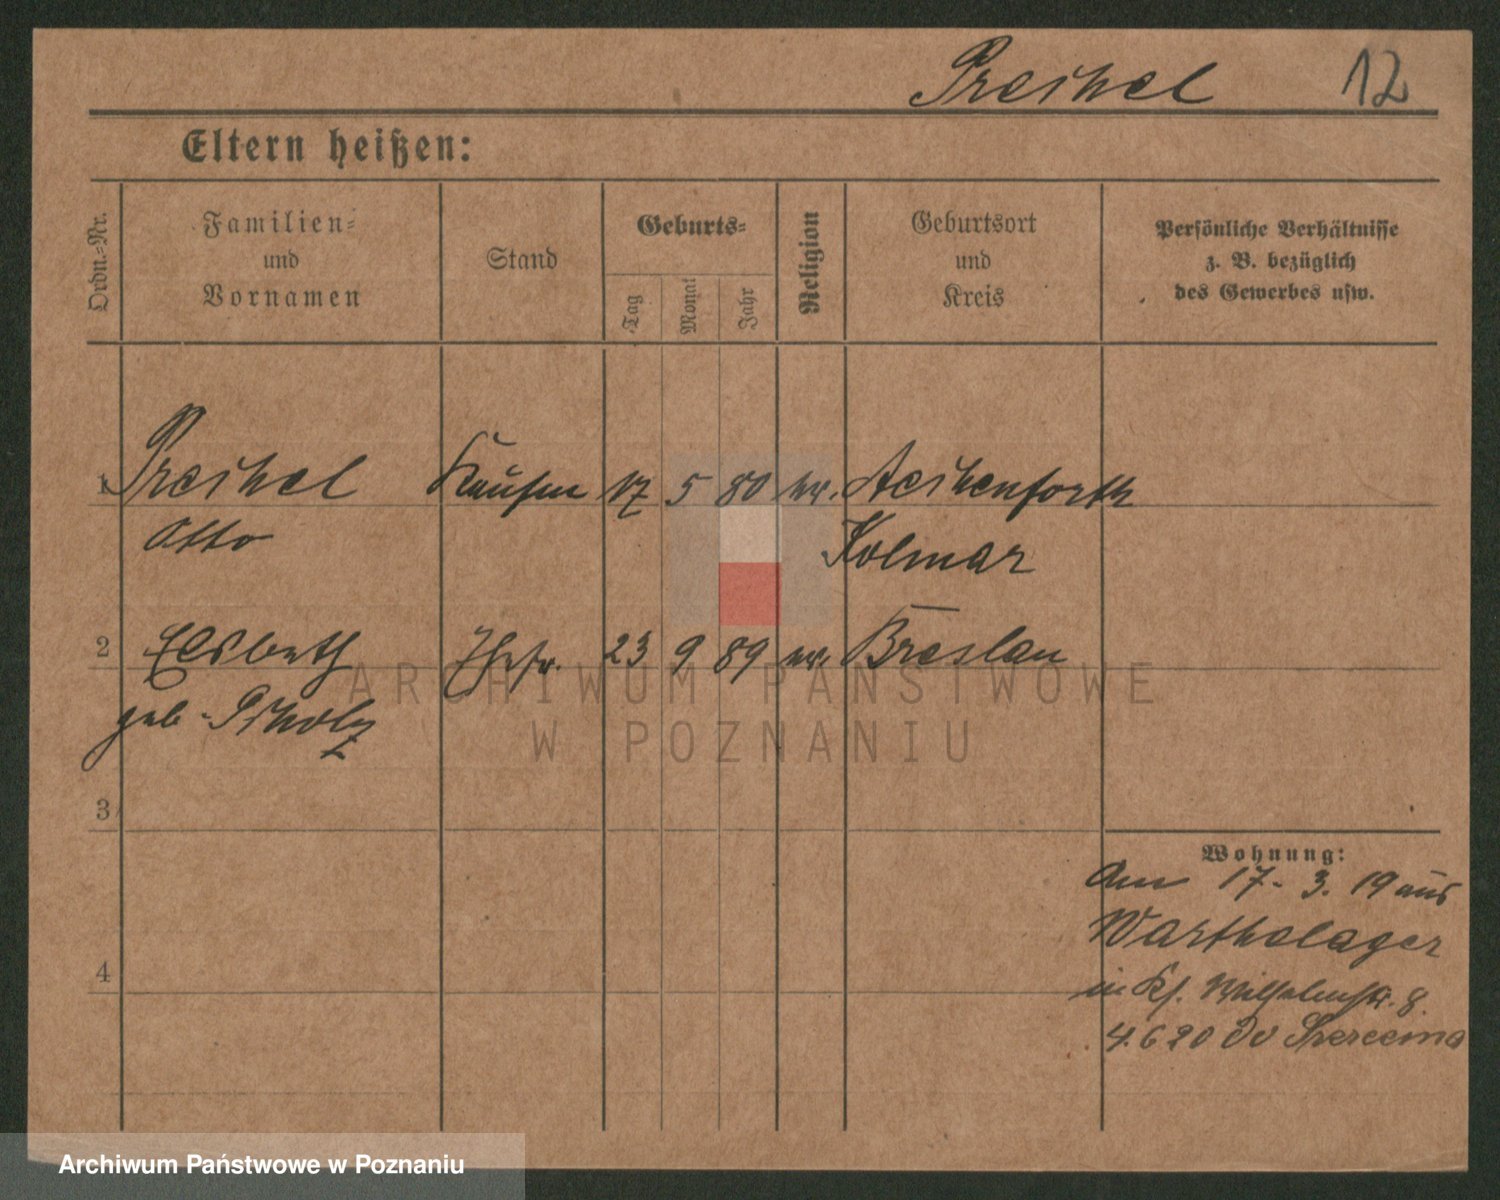 Preihel 12
Eltern heißen:
Ordn.-Nr.
Familien-
und
Vornamen
Stand
Geburts-
Tag
Monat
Jahr
Religion
Geburtsort
und
Kreis
Persönliche Verhältnisse
z. B. bezüglich
des Gewerbes usw.
1 Preihel Kaufm 17 5 80 ev.
Otto Kolmar
2 Elsbeth Ehefr. 23 9 89 ev. Breslau
geb.
3
4
Wohnung:
Am 17. 3. 19 aus
Warthelager
in Kf. Wilhelmstr. 8.
4.6 20 do
ARCHIWUM PAŃSTWOWE
W POZNANIU
Archiwum Państwowe w Poznaniu